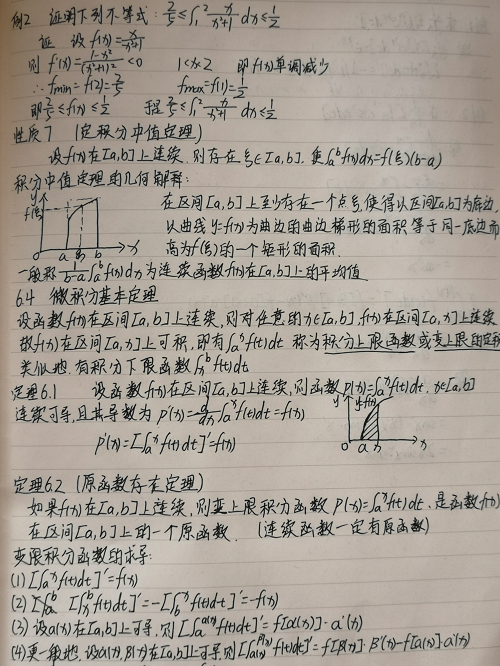 例2 证明下列不等式: 2/5 ≤ ∫₁² x/(x²+1) dx ≤ 1/2
证 设f(x) = x/(x²+1)
则 f'(x) = (1-x²)/(x²+1)² < 0 1<x<2 即f(x)单调减少
∴ fmin = f(2) = 2/5 fmax = f(1) = 1/2
即 2/5 ≤ f(x) ≤ 1/2 于是 2/5 ≤ ∫₁² x/(x²+1) dx ≤ 1/2
性质7 (定积分中值定理)
设f(x)在[a,b]上连续,则存在ξ∈[a,b],使∫ₐᵇf(x)dx=f(ξ)(b-a)
积分中值定理的几何解释:
y
f(ξ)
0 a ξ b x
在区间[a,b]上至少存在一个点ξ,使得以区间[a,b]为底边,
以曲线y=f(x)为曲边的曲边梯形的面积等于同一底边而
高为f(ξ)的一个矩形的面积.
一般称 1/(b-a) ∫ₐᵇf(x)dx为连续函数f(x)在[a,b]上的平均值
6.4 微积分基本定理
设函数f(x)在区间[a,b]上连续,则对任意的x∈[a,b],f(x)在区间[a,x]上连续
故f(x)在区间[a,x]上可积,即有∫ₐˣf(t)dt 称为积分上限函数或变上限的定积
类似地,有积分下限函数∫ₓᵇf(t)dt
定理6.1 设函数f(x)在区间[a,b]上连续,则函数P(x)=∫ₐˣf(t)dt, x∈[a,b]
连续可导,且其导数为 P'(x)= d/dx ∫ₐˣf(t)dt=f(x)
P'(x)=[∫ₐˣf(t)dt]'=f(x)
y y=f(x)
0 a x x
定理6.2 (原函数存在定理)
如果f(x)在[a,b]上连续,则变上限积分函数 P(x)=∫ₐˣf(t)dt,是函数f(x)
在区间[a,b]上的一个原函数. (连续函数一定有原函数)
变限积分函数的求导:
(1) [∫ₐˣf(t)dt]'=f(x)
(2) [∫ₓᵇf(t)dt]'=-[∫_bˣf(t)dt]'=-f(x)
(3) 设a(x)在[a,b]上可导,则[∫ₐ^{a(x)}f(t)dt]'=f[a(x)]·a'(x)
(4) 更一般地,设α(x),β(x)在[a,b]上可导则[∫_{α(x)}^{β(x)}f(t)dt]'=f[β(x)]·β'(x)-f[α(x)]·α'(x)